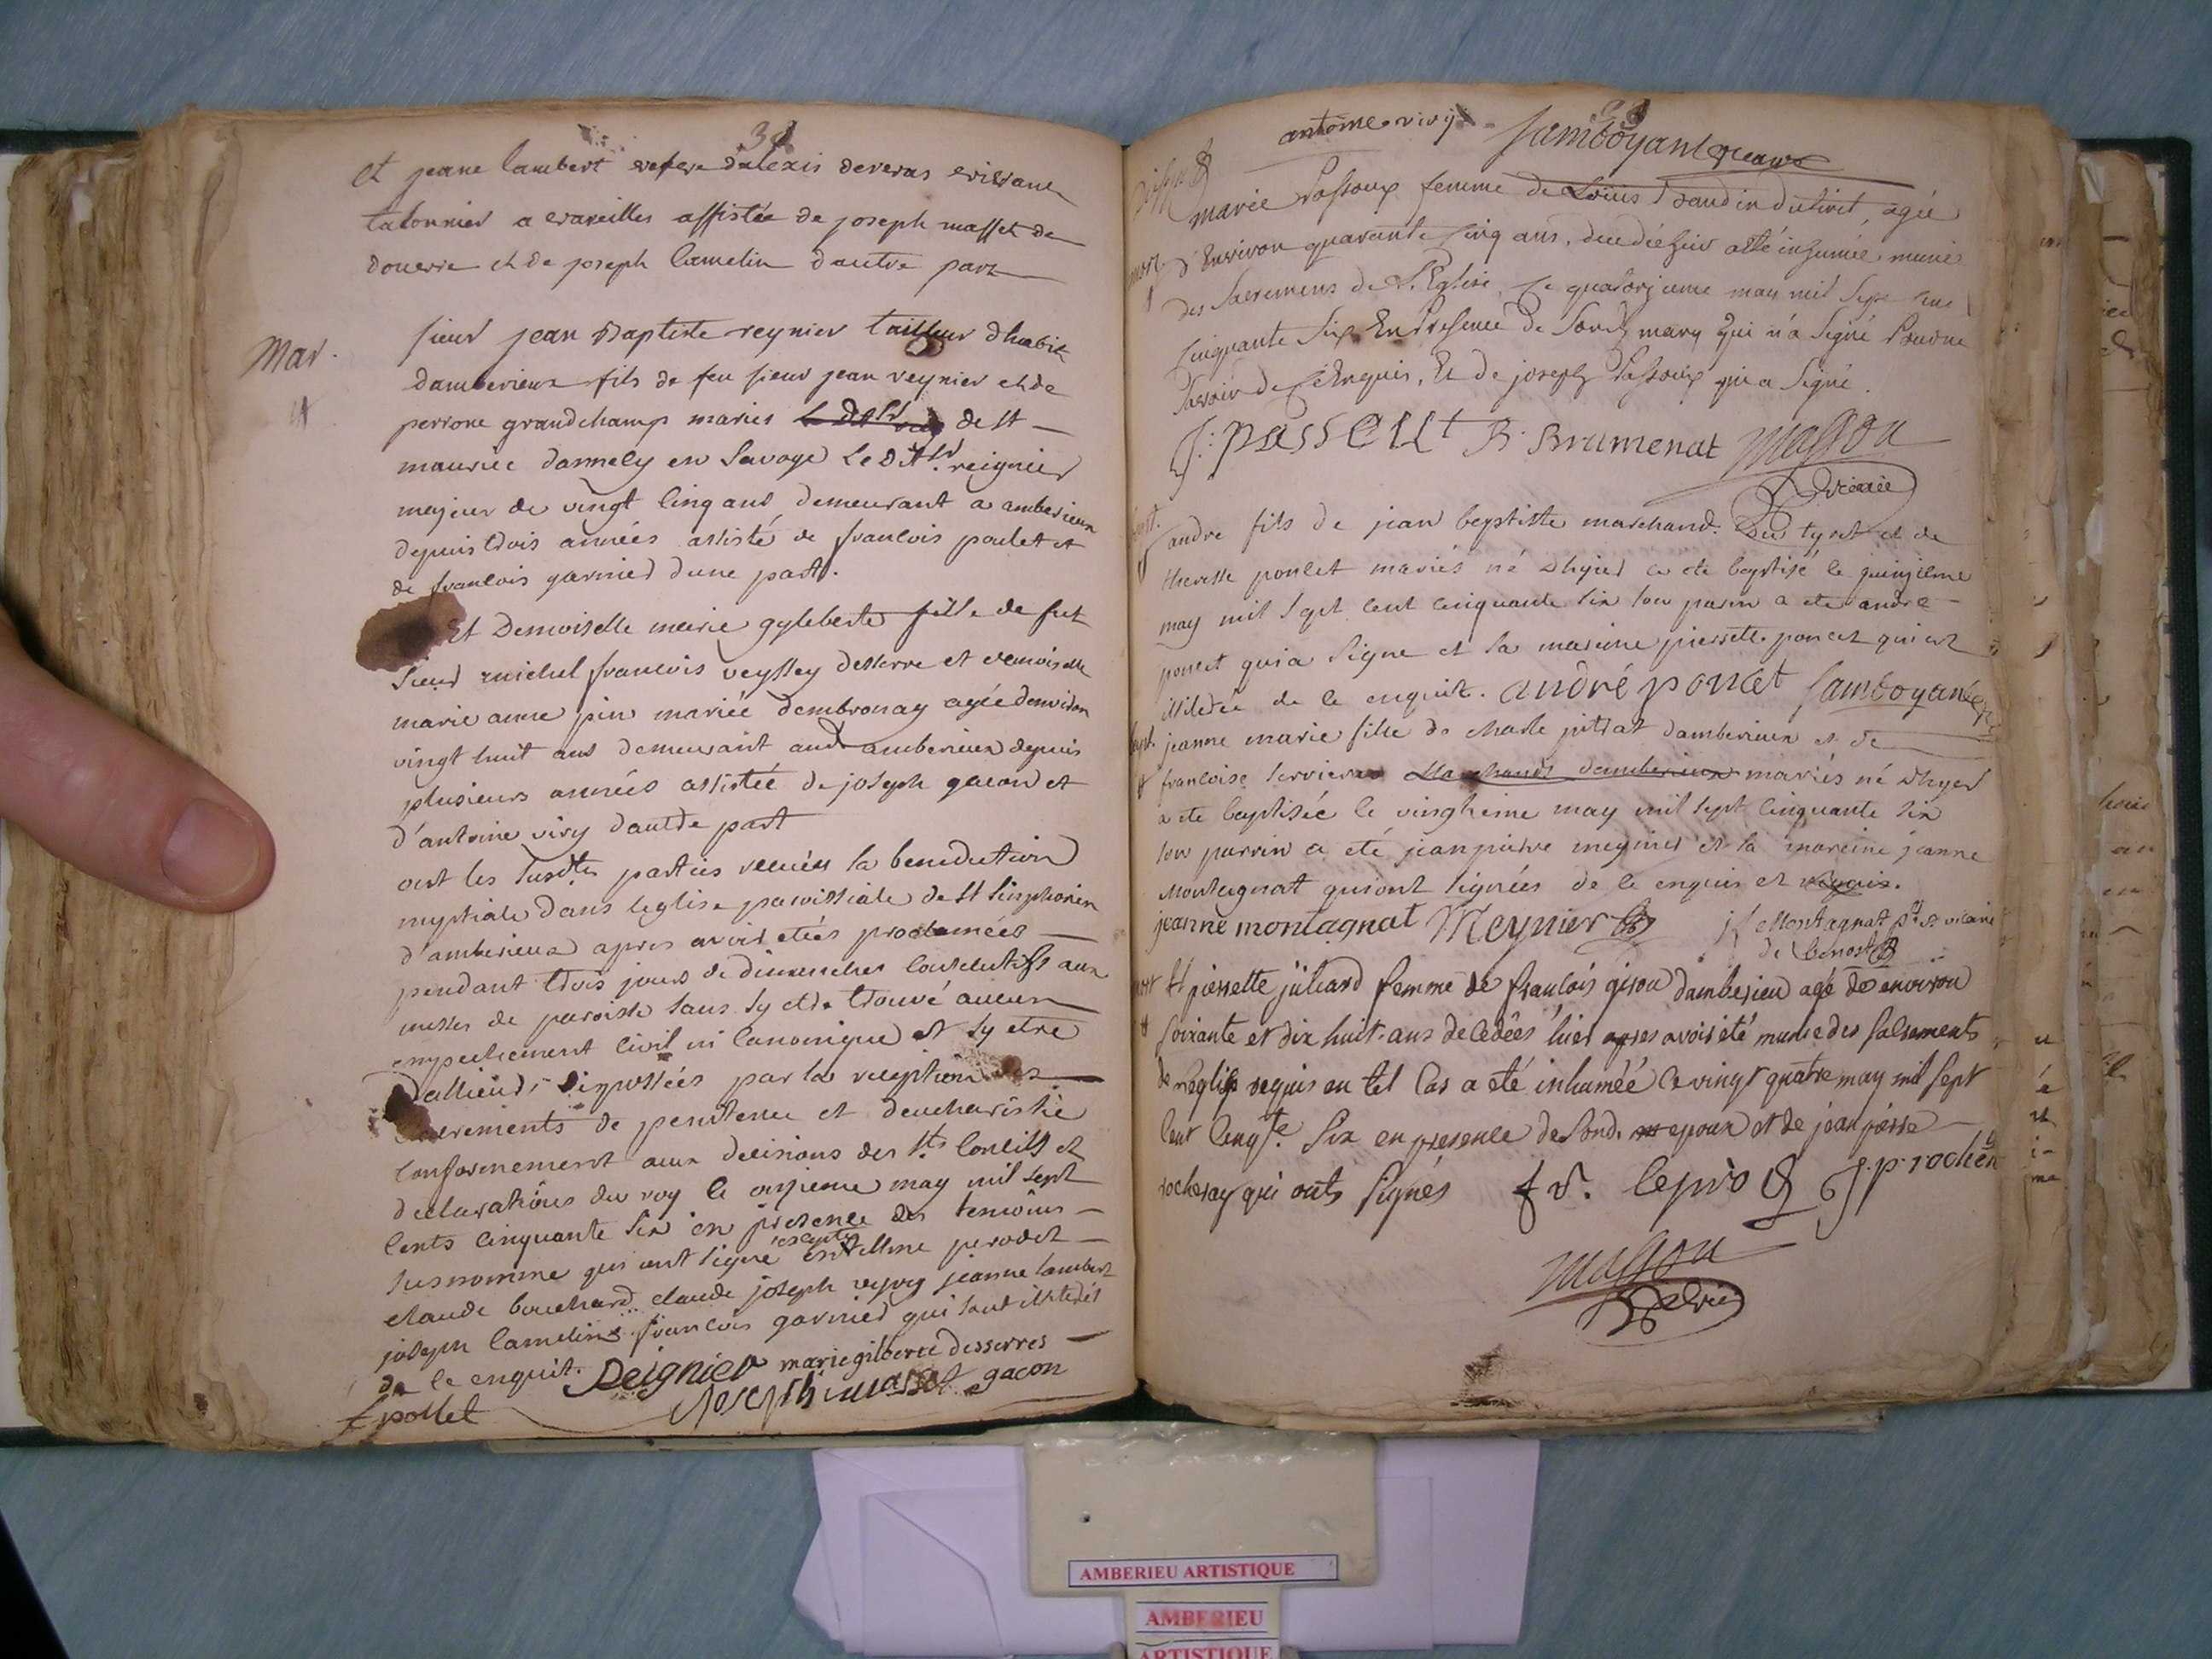 34
et jeane lambert dalexis deveras
talonnier a vareilles assistée de joseph masset de
douvre et de joseph lamelin dautre part
Mar.
sieur jean Baptiste reynier tailleur dhabit
damberieux fils de feu sieur jean reynier et de
perrone grandchamp mariés de st
maurice dannely en Savoye Le dit sr reignier
majeur de vingt cinq ans demeurant a amberieux
depuis trois années assisté de francois poulet et
de francois garnier dune part.
Et Demoiselle marie gyleberte fille de fut
Sieur michel francois veyssey desserre et demoiselle
marie anne pin mariée dembronay agée denviron
vingt huit ans demeurant aud amberieux depuis
plusieurs années assistée de joseph gacon et
d'antoine viry dautre part
ont les susdtes parties receües la benediction
nuptiale dans leglise paroissiale de st simphorien
d'amberieux apres avoir etées proclamées
pendant trois jours de dimanches consecutifs aux
messes de paroisse sans sy etre trouvé aucun
empechement civil ni canonique et sy etre
dallieurs disposées par la reception des
sacrements de penitence et deucharistie
conformement aux decisions des sts conciles et
declarations du roy le onzieme may mil sept
cents cinquante six en presence des temoins
susnomme qui ont signé perodet
claude bouchard claude joseph jeanne lambert
joseph lamelin francois garnier qui sont illiterés
de ce enquit. Reignier marie gilberte desserres
f pollet joseph masset gacon
antoine viry Jamboyant vicaire
mort
marie Passoux femme de Louis Baudin dutiret, agée
d'Environ quarante cinq ans, decedée hier a été inhumée munie
des sacremens de L'Eglise, ce quatorzieme may mil sept cent
cinquante six En Presence de Sondt mary qui n'a signé Pour ne
Scavoir de ce Enquis, Et de joseph Passoux qui a signé.
J: PASSOUt B. Brumenat masson
vicaire
bapt.
andre fils de jean baptiste marchand. Du tyret et de
theresse poncet mariés né dhyer a ete baptisé le quinzieme
may mil sept cent cinquante six son parin a ete andre
poncet qui a signe et la marine pierrette poncet qui est
illiterée de ce enquit. andré poncet Jamboyant
bapt.
jeanne marie fille de charle pittat damberieux et de
francoise servieres marchands damberieux mariés né dhyer
a ete baptisée le vingtieme may mil sept cinquante six
son parrin a eté jean pierre meynier et la mareine jeanne
Montagnat qui ont signées de ce enquis et requis.
jeanne montagnat Meynier Montagnat ptre vicaire
de
mort
pierrette juliard femme de francois giron damberieu agé de environ
soixante et dix huit ans decedées hier apres avoir été munie des sacrements
de l'eglise requis en tel cas a été inhuméé ce vingt quatre may mil sept
cent cinqte six en presence de sondt epoux et de jean pierre
rocheray qui onts signés f v. J.p. rocher
masson
vicaire
AMBERIEU ARTISTIQUE
AMBERIEU
ARTISTIQUE